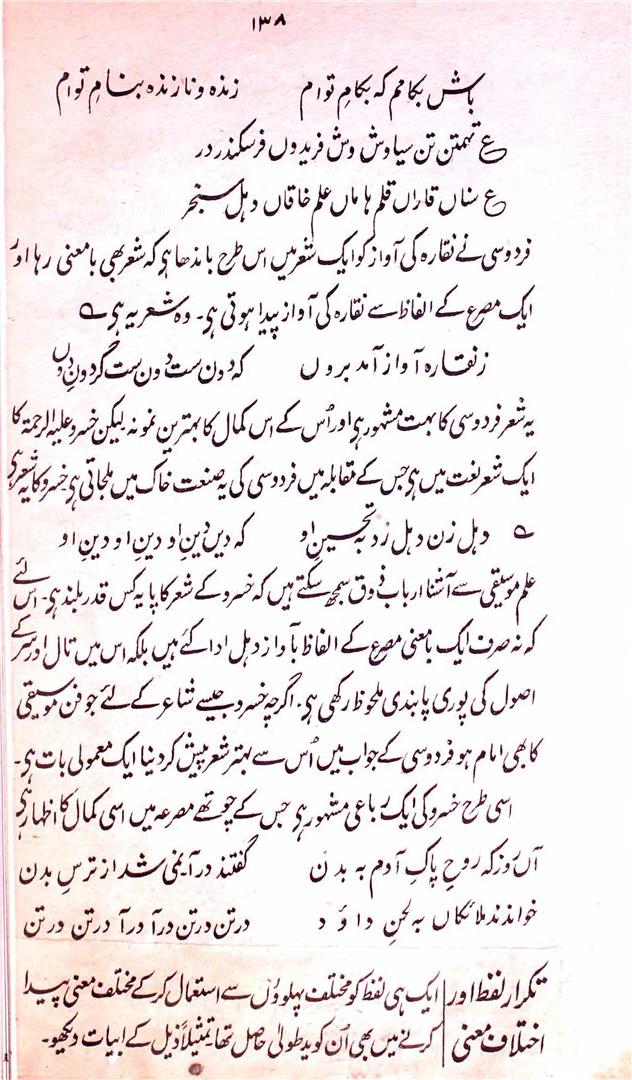 ۱۳۸
باش بکامم کہ بکامِ توام زندہ و نازندہ بنامِ توام
ع تہمتن تن سیاوش وش فریدوں فر سکندر در
ع سناں قاراں قلم ہاماں علم خاقاں دہل سنجر
فردوسی نے نقارہ کی آواز کو ایک شعر میں اس طرح باندھا ہی کہ شعر بھی بامعنی رہا اور
ایک مصرع کے الفاظ سے نقارہ کی آواز پیدا ہوتی ہی۔ وہ شعر یہ ہی ؎
زنقارہ آواز آمد بروں کہ دون ست دون ست گردونِ دوں
یہ شعر فردوسی کا بہت مشہور ہی اور اُس کے اس کمال کا بہترین نمونہ لیکن خسرو علیہ الرحمۃ کا
ایک شعر نعت میں ہی جس کے مقابلہ میں فردوسی کی یہ صنعت خاک میں ملجاتی ہی خسرو کا یہ شعر ہی
؎ دہل زن دہل زد بہ تحسینِ او کہ دیں دینِ او دینِ او دینِ او
علم موسیقی سے آشنا ارباب ذوق سمجھ سکتے ہیں کہ خسرو کے شعر کا پایہ کس قدر بلند ہی۔ اس لئے
کہ نہ صرف ایک بامعنی مصرع کے الفاظ بآواز دہل ادا کئے ہیں بلکہ اس میں تال اور سر کے
اصول کی پوری پابندی ملحوظ رکھی ہی۔ اگرچہ خسرو جیسے شاعر کے لئے جو فن موسیقی
کا بھی امام ہو فردوسی کے جواب میں اُس سے بہتر شعر پیش کر دینا ایک معمولی بات ہی۔
اسی طرح خسرو کی ایک رباعی مشہور ہی جس کے چوتھے مصرعہ میں اسی کمال کا اظہار ہی
آں روز کہ روحِ پاکِ آدم بہ بدن گفتند در آ نمی شد از ترسِ بدن
خواندند ملائکاں بہ لحنِ داؤد در تن در تن در آ در آ در تن در تن
تکرار لفظ اور ایک ہی لفظ کو مختلف پہلووں سے استعمال کر کے مختلف معنی پیدا
اختلاف معنی کرنے میں بھی اُن کو یدطولیٰ حاصل تھا۔ تمثیلاً ذیل کے ابیات دیکھو۔